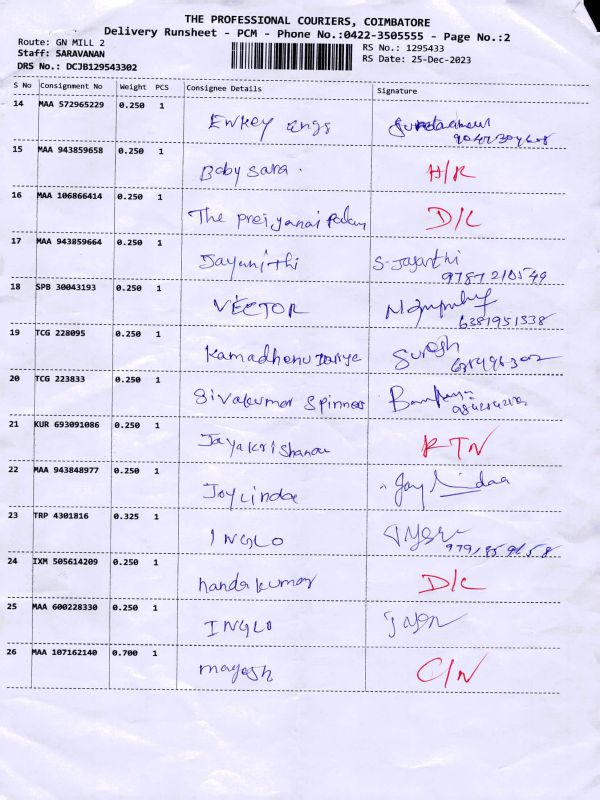 THE PROFESSIONAL COURIERS, COIMBATORE
Delivery Runsheet - PCM - Phone No.:0422-3505555 - Page No.:2
Route: GN MILL 2
RS No.: 1295433
Staff: SARAVANAN
RS Date: 25-Dec-2023
DRS No.: DCJB129543302
S No Consignment No Weight PCS Consignee Details Signature
14 MAA 572965229 0.250 1 Enkey engs
15 MAA 943859658 0.250 1 Baby sara. H/R
16 MAA 106866414 0.250 1 The D/L
17 MAA 943859664 0.250 1 Jayanithi S-Jayanthi
9787210549
18 SPB 30043193 0.250 1 VECTOR
6381951538
19 TCG 228095 0.250 1 Kamadhenu Suresh
20 TCG 223833 0.250 1 Sivakumar Spinners
21 KUR 693091086 0.250 1 Jayakrishanan RTN
22 MAA 943848977 0.250 1 Joylinda
23 TRP 4301816 0.325 1 INGLO
24 IXM 505614209 0.250 1 nandakumar D/L
25 MAA 600228330 0.250 1 INGLO
26 MAA 107162140 0.700 1 magesh C/N